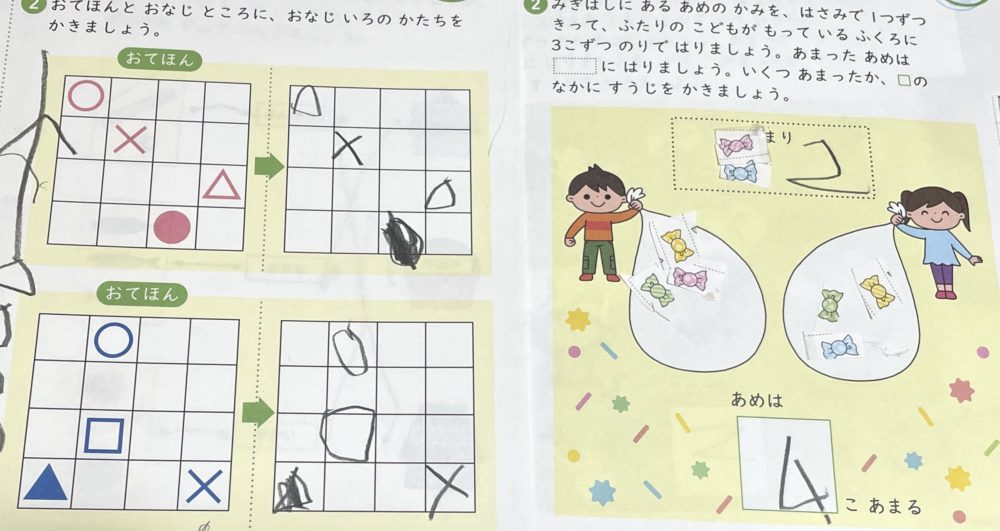 2 おてほんと おなじ ところに、おなじ いろの かたちを
かきましょう。
おてほん
おてほん
2 みぎはしに ある あめの かみを、はさみで 1つずつ
きって、ふたりの こどもが もって いる ふくろに
3こずつ のりで はりましょう。あまった あめは
に はりましょう。いくつ あまったか、□の
なかに すうじを かきましょう。
まり
2
あめは
4
こ あまる